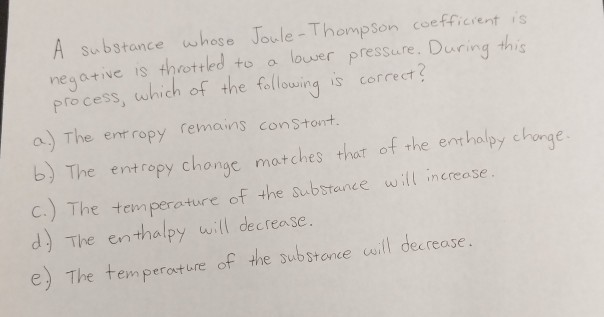 A substance whose Joule-Thompson coefficient is
negative is throttled to a lower pressure. During this
process, which of the following is correct?
a.) The entropy remains constant.
b.) The entropy change matches that of the enthalpy change.
c.) The temperature of the substance will increase.
d.) The enthalpy will decrease.
e.) The temperature of the substance will decrease.